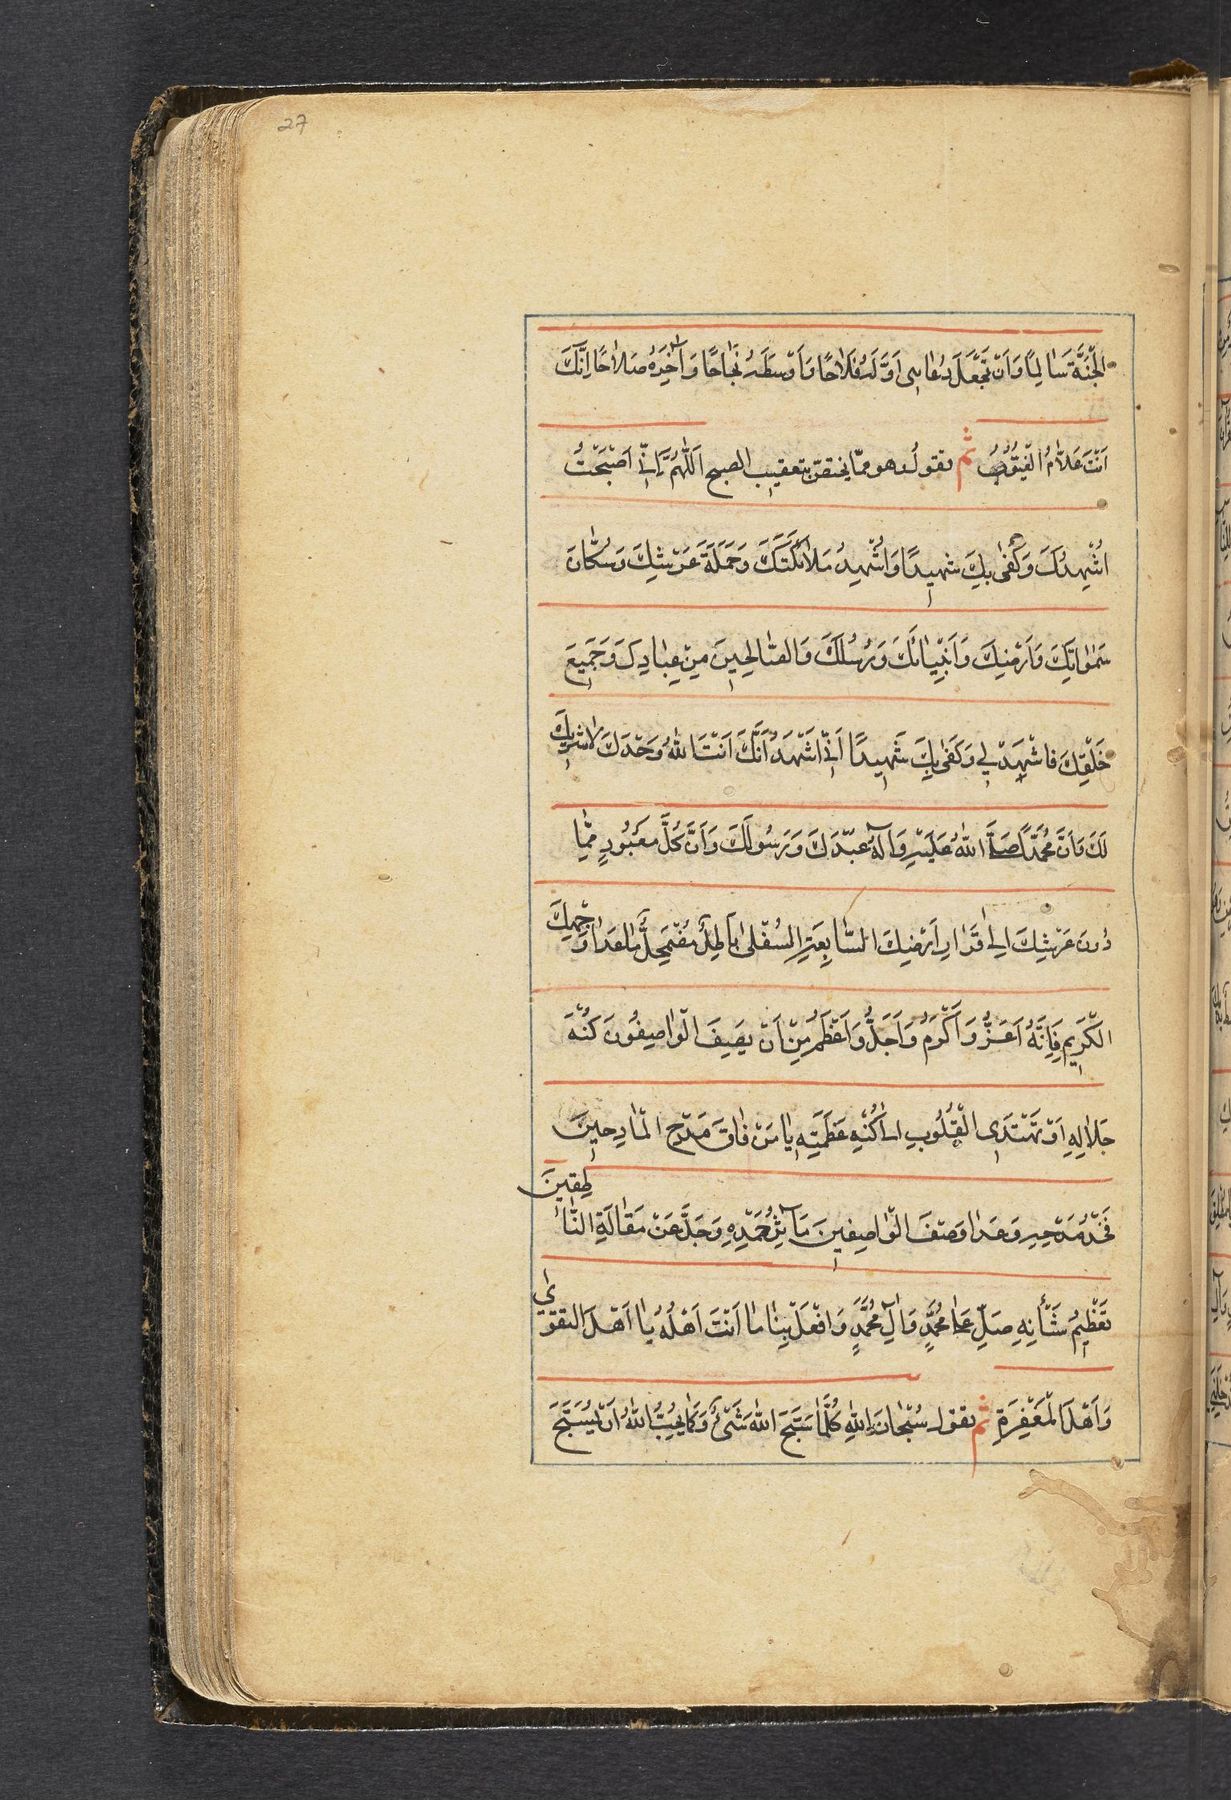 27
الْجَنَّةَ سَالِمًا وَاَنْ تَجْعَلَ دُعَائِى اَوَّلَهُ فَلَاحًا وَاَوْسَطَهُ نَجَاحًا وَآخِرَهُ صَلَاحًا اِنَّكَ
اَنْتَ عَلَّامُ الْغُيُوبِ ثم تقول وهو ممّا يختصّ بتعقيب الصبح اَللّٰهُمَّ اِنِّى اَصْبَحْتُ
اُشْهِدُكَ وَكَفٰى بِكَ شَهِيدًا وَاُشْهِدُ مَلَائِكَتَكَ وَحَمَلَةَ عَرْشِكَ وَسُكَّانَ
سَمٰوَاتِكَ وَاَرْضِكَ وَاَنْبِيَائَكَ وَرُسُلَكَ وَالصَّالِحِينَ مِنْ عِبَادِكَ وَجَمِيعَ
خَلْقِكَ فَاشْهَدْ لِى وَكَفٰى بِكَ شَهِيدًا اَنِّى اَشْهَدُ اَنَّكَ اَنْتَ اللّٰهُ وَحْدَكَ لَا شَرِيكَ
لَكَ وَاَنَّ مُحَمَّدًا صَلَّى اللّٰهُ عَلَيْهِ وَآلِهِ عَبْدُكَ وَرَسُولُكَ وَاَنَّ كُلَّ مَعْبُودٍ مِمَّا
دُونَ عَرْشِكَ اِلٰى قَرَارِ اَرْضِكَ السَّابِعَةِ السُّفْلٰى بَاطِلٌ مُضْمَحِلٌّ مَا عَدَا وَجْهِكَ
الْكَرِيمِ فَاِنَّهُ اَعَزُّ وَاَكْرَمُ وَاَجَلُّ وَاَعْظَمُ مِنْ اَنْ يَصِفَ الْوَاصِفُونَ كُنْهَ
جَلَالِهِ اَوْ تَهْتَدِىَ الْقُلُوبُ اِلٰى كُنْهِ عَظَمَتِهِ يَا مَنْ فَاقَ مَدْحَ الْمَادِحِينَ
فَخْرُ مَدْحِهِ وَعَدَا وَصْفَ الْوَاصِفِينَ مَآثِرُ حَمْدِهِ وَجَلَّ عَنْ مَقَالَةِ النَّاطِقِينَ
تَعْظِيمُ شَأْنِهِ صَلِّ عَلٰى مُحَمَّدٍ وَآلِ مُحَمَّدٍ وَافْعَلْ بِنَا مَا اَنْتَ اَهْلُهُ يَا اَهْلَ التَّقْوٰى
وَاَهْلَ الْمَغْفِرَةِ ثم تقول سُبْحَانَ اللّٰهِ كُلَّمَا سَبَّحَ اللّٰهَ شَىْءٌ وَكَمَا يُحِبُّ اللّٰهُ اَنْ يُسَبَّحَ